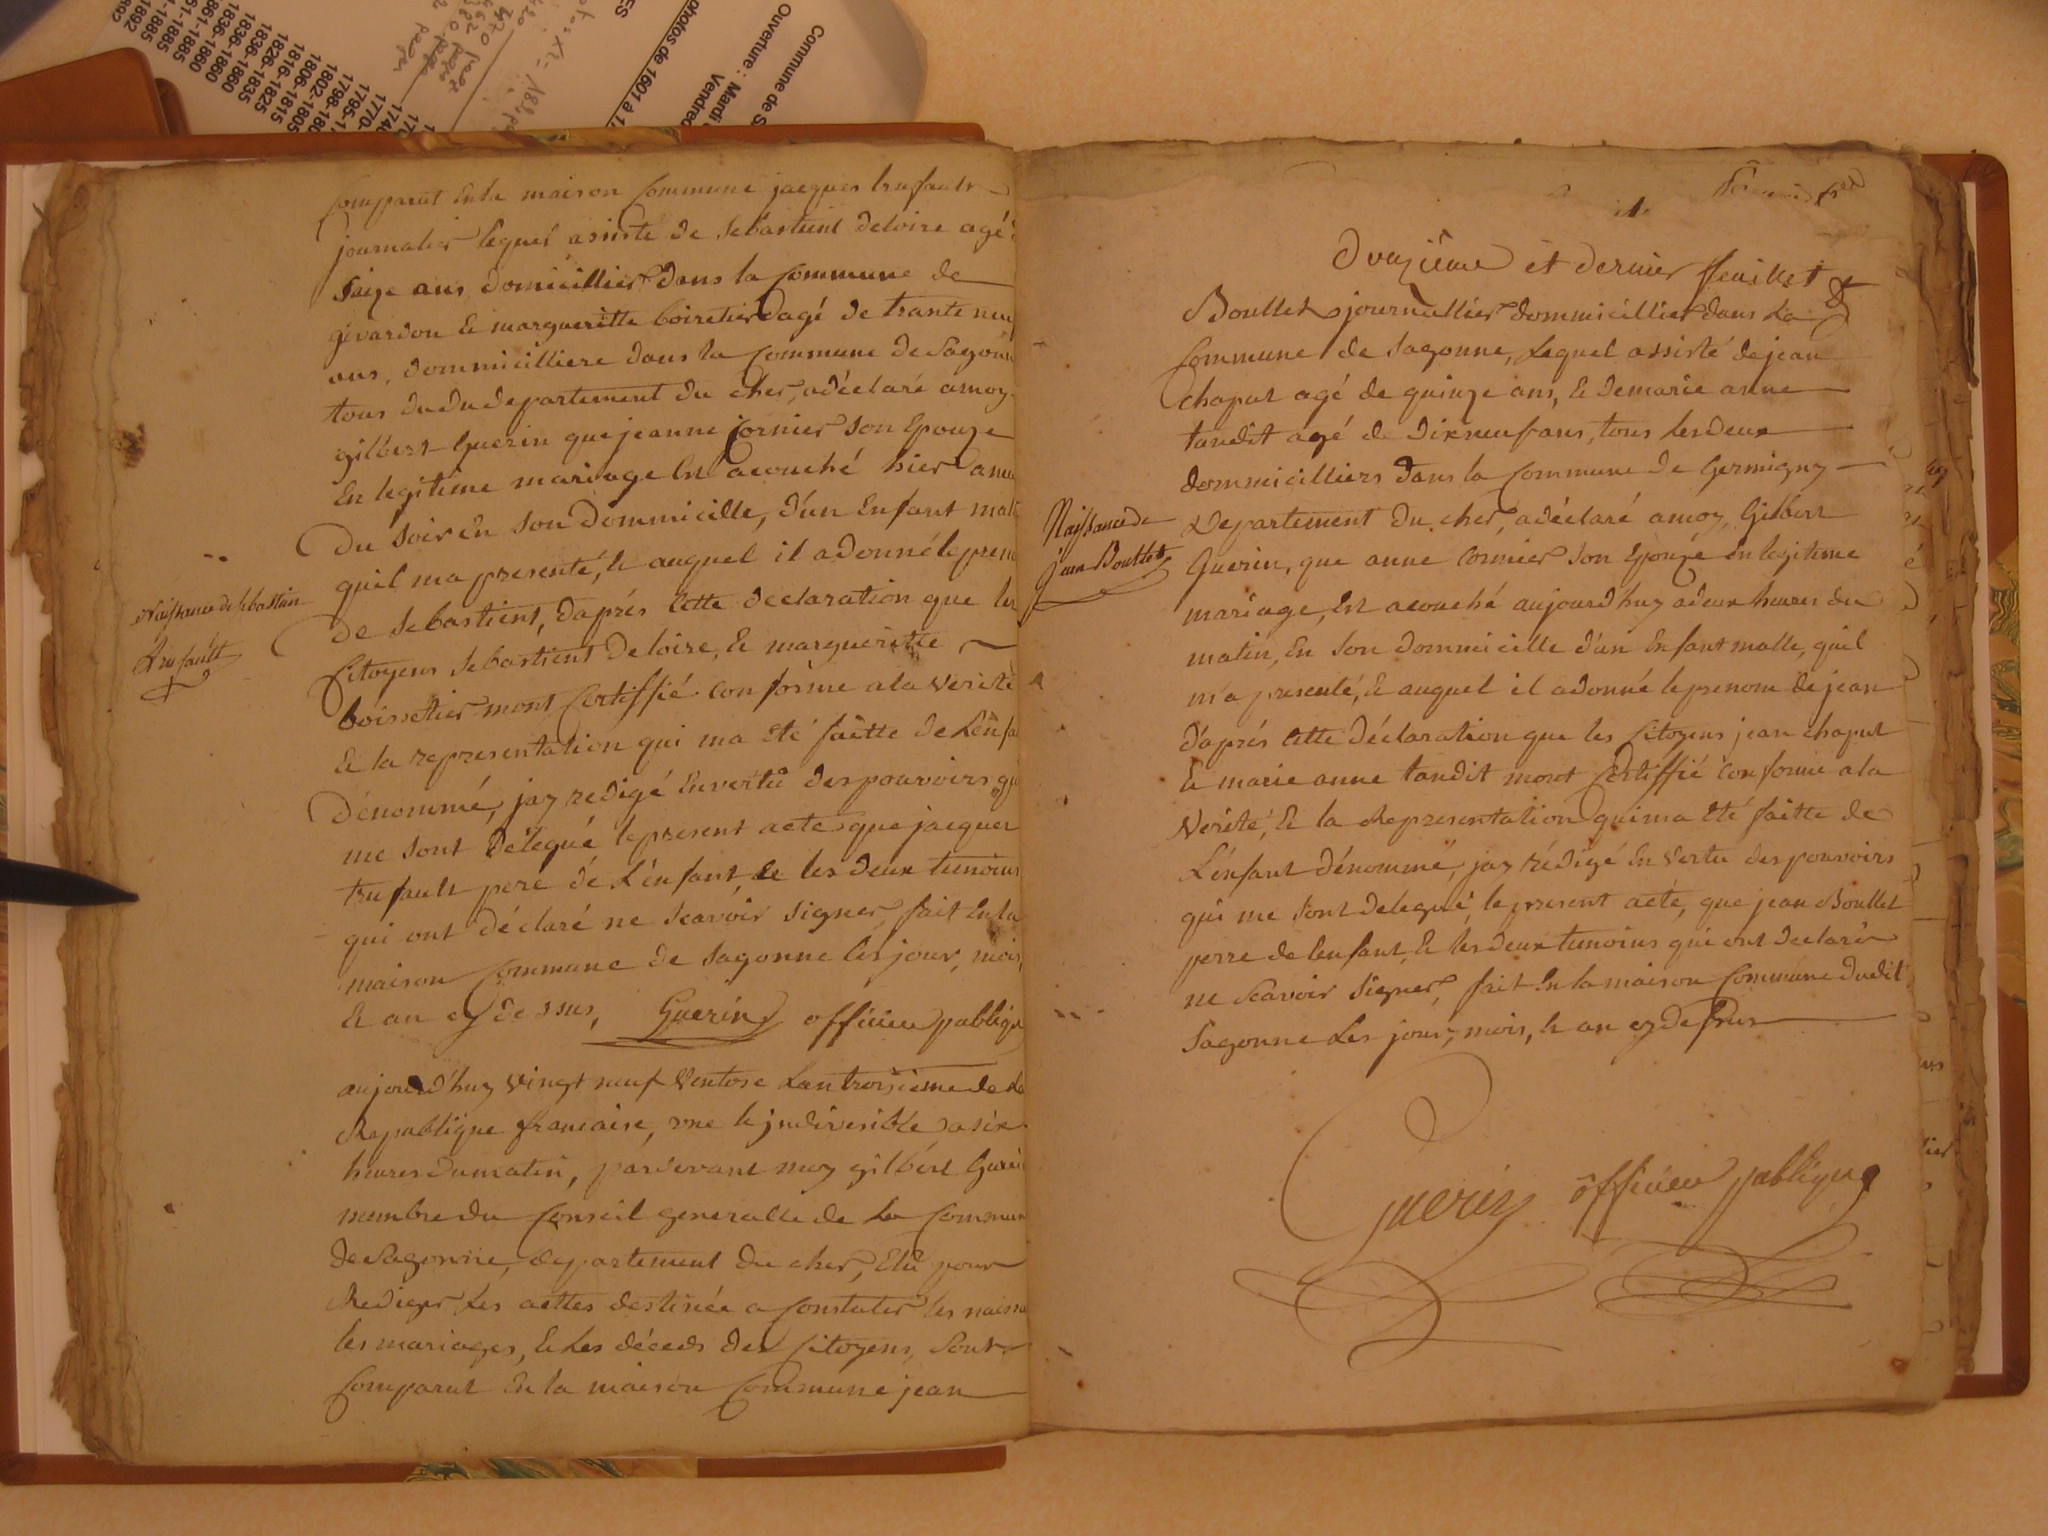 Commune de S
Ouverture : Mardi
Vendred
photos de 1601 à 1
ES
170
1740
1770-
1795-1
1798-180
1802-1805
1806-1815
1816-1825
1826-1835
1836-1860
1836-1860
1861-1885
1-1885
1892
comparut En la maison Commune jacques trufault
journalier lequel assisté de sebastient deloire agé
Saize ans domicillier dans la Commune de
givardon & margueritte boiretier dagé de trante neuf
ans, dommicilliere dans la Commune de Sagonn
tous du du departement du cher, a déclaré a moy
gilbert Guerin que jeanne Cornier son Epouze
En legitime mariage Est acouché hier a neu
du soir En son Dommicille, d'un Enfant mal
quil ma presenté, & auquel il a donné le pren
de sebastient, d'aprés Cette declaration que les
Citoyens sebastient Deloire, & margueritte
boissetier mont Certiffié Conforme a la verité
& la representation qui ma Eté faitte de L'enfa
dénommé, jay redigé En vertû des pouvoirs qu
me sont délegué le present acte que jacques
trufault pere dé L'enfant, & les deux temoins
qui ont déclaré ne scavoir signer, fait En la
maison Commune de Sagonne les jour, mois,
& an cy dessus, Guerin officier publiqu
Naissance de sebastien
trufault
aujourd'huy vingt neuf Ventose L'an troisieme de La
Republique francaise, une & jndivisible a six
heures du matin, pardevant moy gilbért Gueri
membre du Conseil generalle de La Commun
de Sagonne, departement du cher, Elû pour
Rediger Les acttes destinée a Constater les naissa
les mariages, & Les déceds des Citoyens, Sont
Comparut En la maison Commune jean
Douzieme et dernier feuillet
Boullet journallier dommicillier dans La
Commune de Sagonne, Lequel assisté de jean
chaput agé de quinze ans, & de marie anne
tandit agé de Dixneuf ans, tous les deux
dommicilliers dans la Commune de Germigny
Departement du cher, a déclaré a moy, Gilbert
Guerin, que anne Cornier son Epouze En legitime
mariage, Est acouché aujourdhuy a deux heures du
matin, En son dommicille d'un Enfant malle, quil
m'a presenté, & auquel il a donné le prenom de jean
d'aprés Cette déclaration que les Citoyens jean chaput
& marie anne tandit mont Certiffié Conforme a la
Verité, & la Representation qui ma Eté faitte de
L'énfant dénommé, jay rédigé En vertu des pouvoirs
qui me sont delegué, le present acte, que jean Boullet
perre de lenfant & les deux temoins qui ont declaré
ne Scavoir signer, fait En la maison Commune dudit
Sagonne Les jour, mois, & an cy dessus
Naissance de
jean Boullet
Guerin officier publique